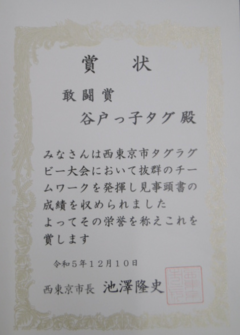 賞状
敢闘賞
谷戸っ子タグ 殿
みなさんは西東京市タグラグ
ビー大会において抜群のチー
ムワークを発揮し見事頭書の
成績を収められました
よってその栄誉を称えこれを
賞します
令和5年12月10日
西東京市長 池澤隆史